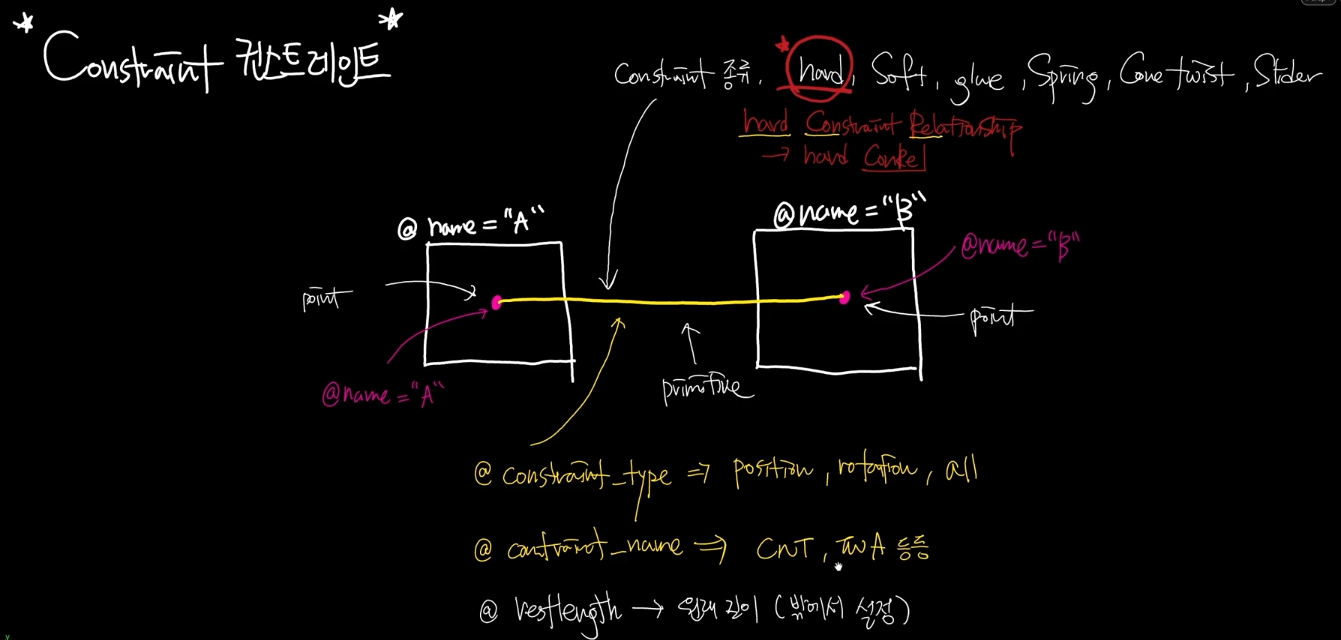 *Constraint 컨스트레인트*
constraint 종류, hard, Soft, glue, Spring, Conetwist, Slider
hard Constraint Relationship
→ hard ConRel
@name="A"
@name="B"
@name="B"
point
point
@name="A"
primitive
@constraint_type ⇒ position, rotation, all
⇒ CNT, 등등
@restlength → 원래 길이 (밖에서 설정)